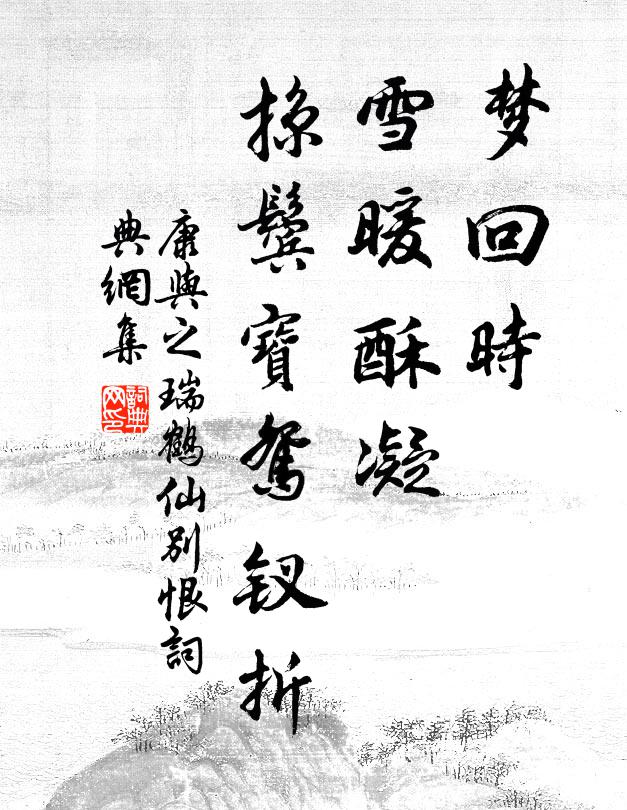 梦回時
雪暖酥凝
掠鬓寶鴛釵折
康與之瑞鶴仙别恨詞
典網集
詞典
网印